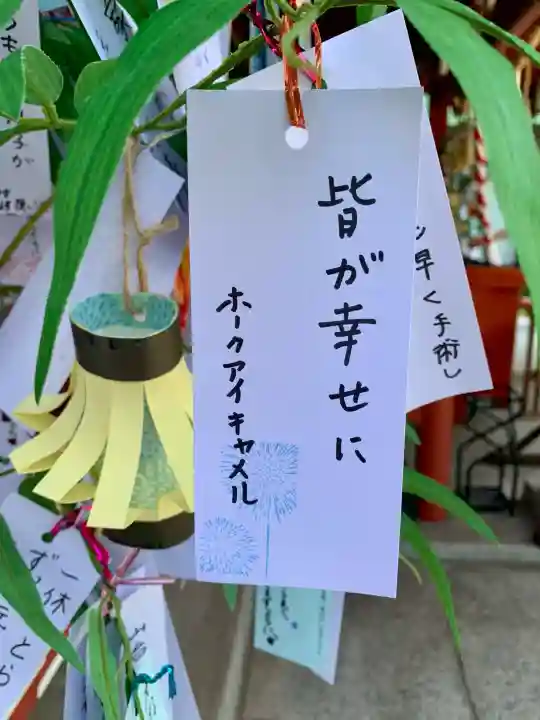 皆が幸せに
ホークアイキャメル
早く手術し
一休